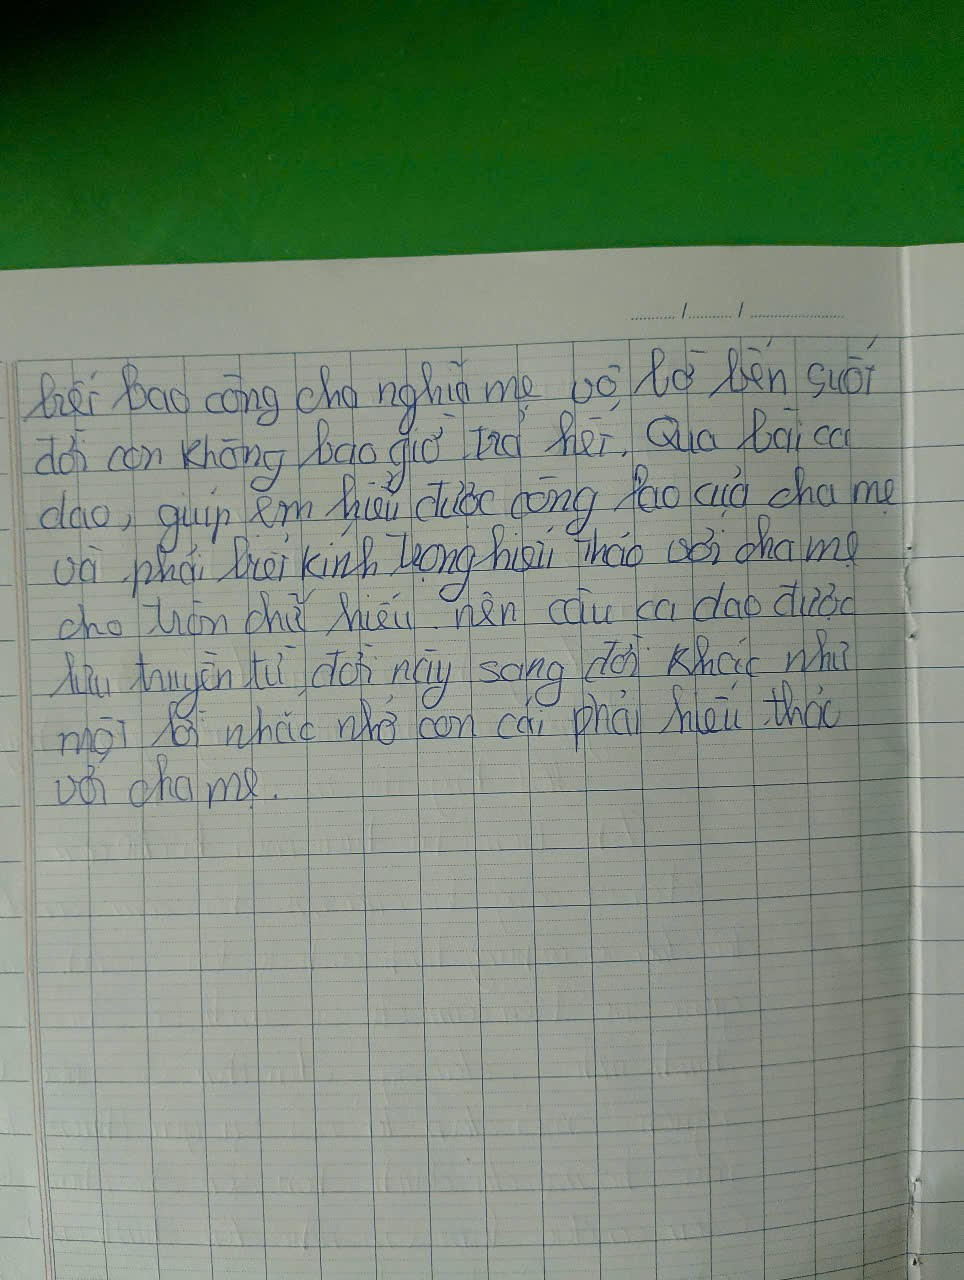 biết bao công cha nghĩa mẹ vô bờ bến suốt
đời con không bao giờ trả hết. Qua bài ca
dao, giúp em hiểu được công lao của cha mẹ
và phải biết kính trọng hiếu thảo với cha mẹ
cho tròn chữ hiếu. nên câu ca dao được
lưu truyền từ đời này sang đời khác như
một lời nhắc nhở con cái phải hiếu thảo
với cha mẹ.